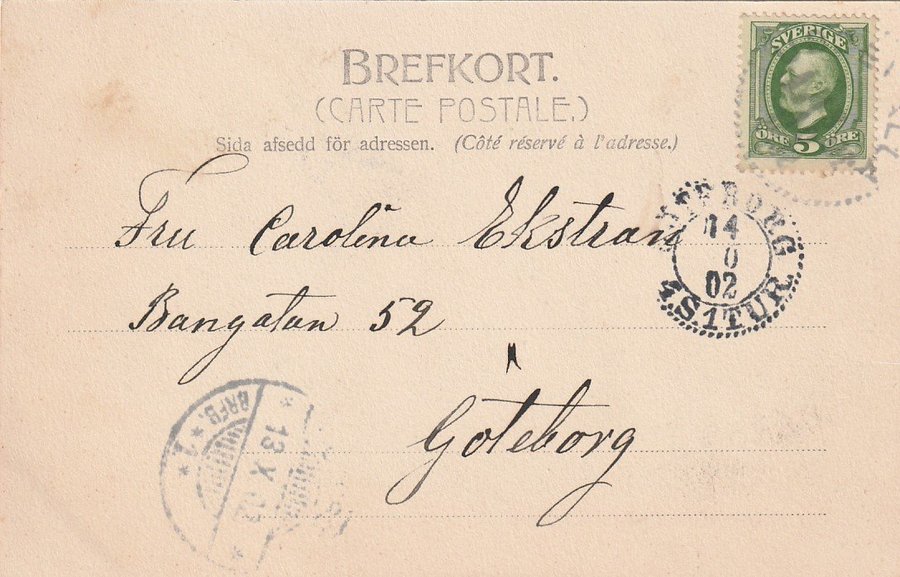 BREFKORT.
(CARTE POSTALE.)
Sida afsedd för adressen. (Côté réservé à l'adresse.)
SVERIGE
ÖRE 5 ÖRE
Fru Carolina Ekstran
Bangatan 52
Göteborg
14
02
4S1TUR
BRFB. * 1 *
* 13 X 02 *